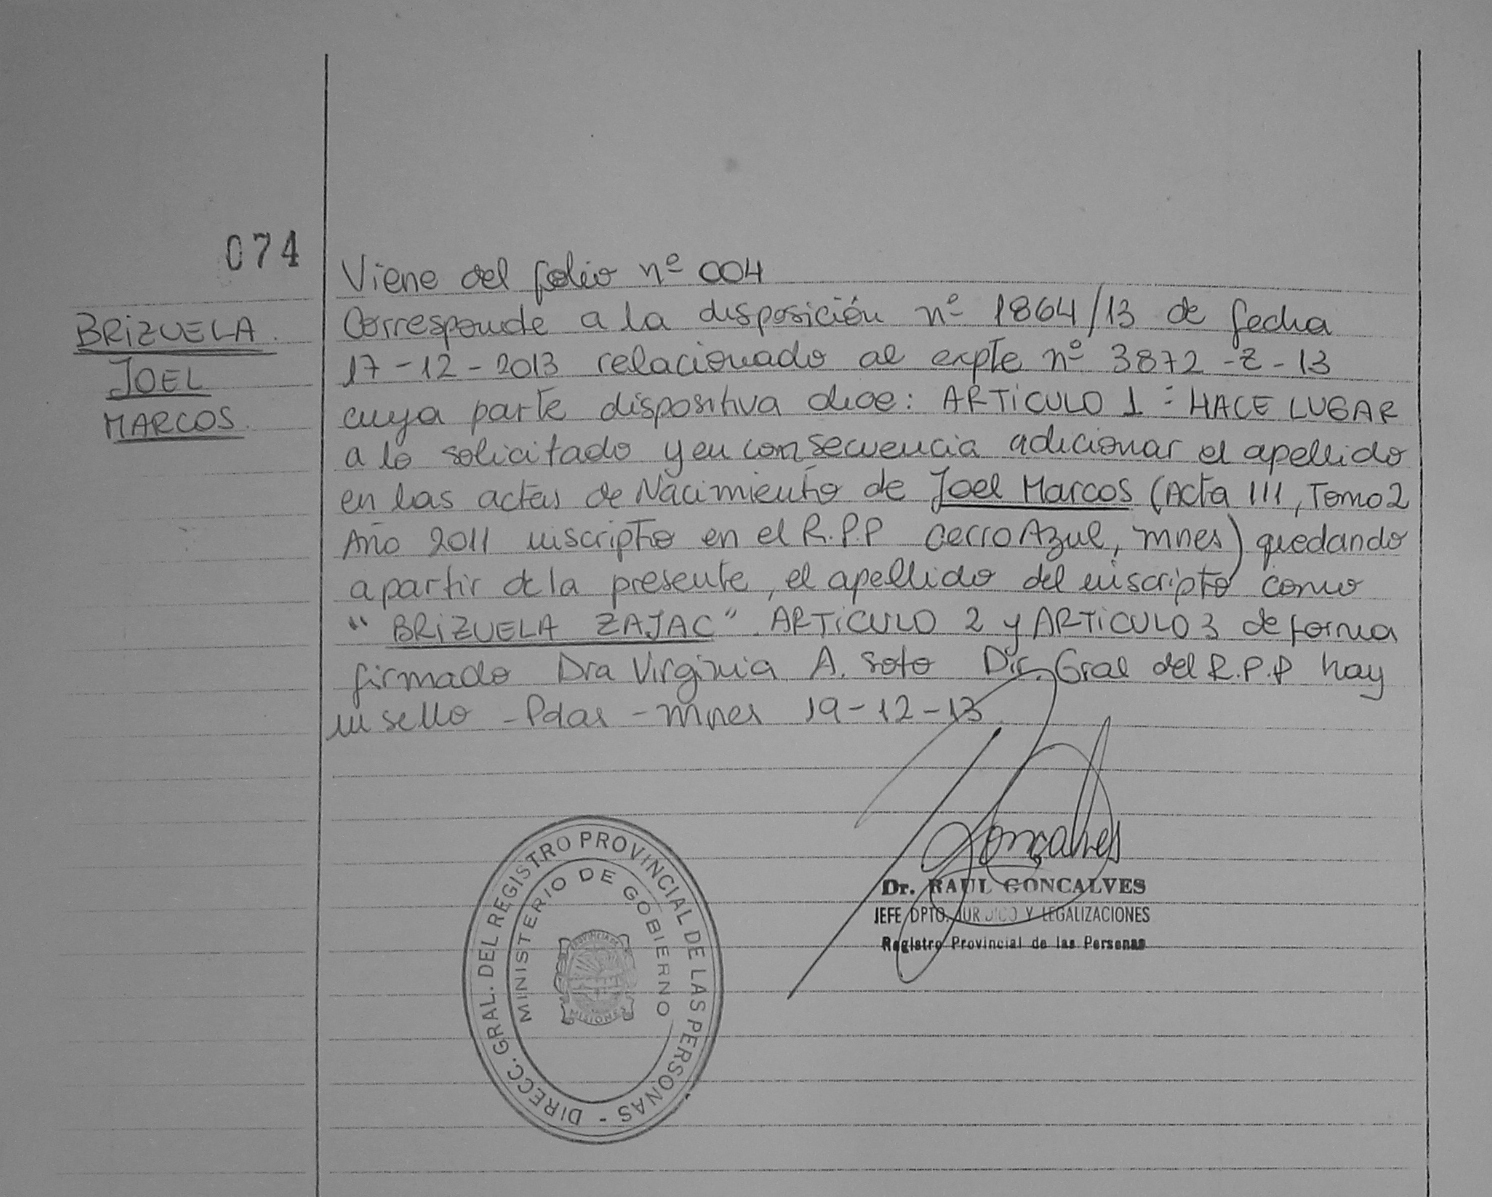 074
BRIZUELA
JOEL
MARCOS
Viene del folio nº 004
Corresponde a la disposición nº 1864/13 de fecha
17-12-2013 relacionado al expte nº 3872-Z-13
cuya parte dispositiva dice: ARTICULO 1: HACE LUGAR
a lo solicitado y en consecuencia adicionar el apellido
en las actas de Nacimiento de Joel Marcos (Acta 111, Tomo 2
Año 2011 inscripto en el R.P.P Cerro Azul, mnes) quedando
a partir de la presente, el apellido del inscripto como
"BRIZUELA ZAJAC". ARTICULO 2 y ARTICULO 3 de forma
firmado Dra Virginia A. Soto Dir. Gral del R.P.P hay
un sello - Pdas - mnes 19-12-13
DIRECC. GRAL. DEL REGISTRO PROVINCIAL DE LAS PERSONAS -
MINISTERIO DE GOBIERNO
PROVINCIA DE
MISIONES
Goncalves
Dr. RAUL GONCALVES
JEFE DPTO. JURIDICO Y LEGALIZACIONES
Registro Provincial de las Personas